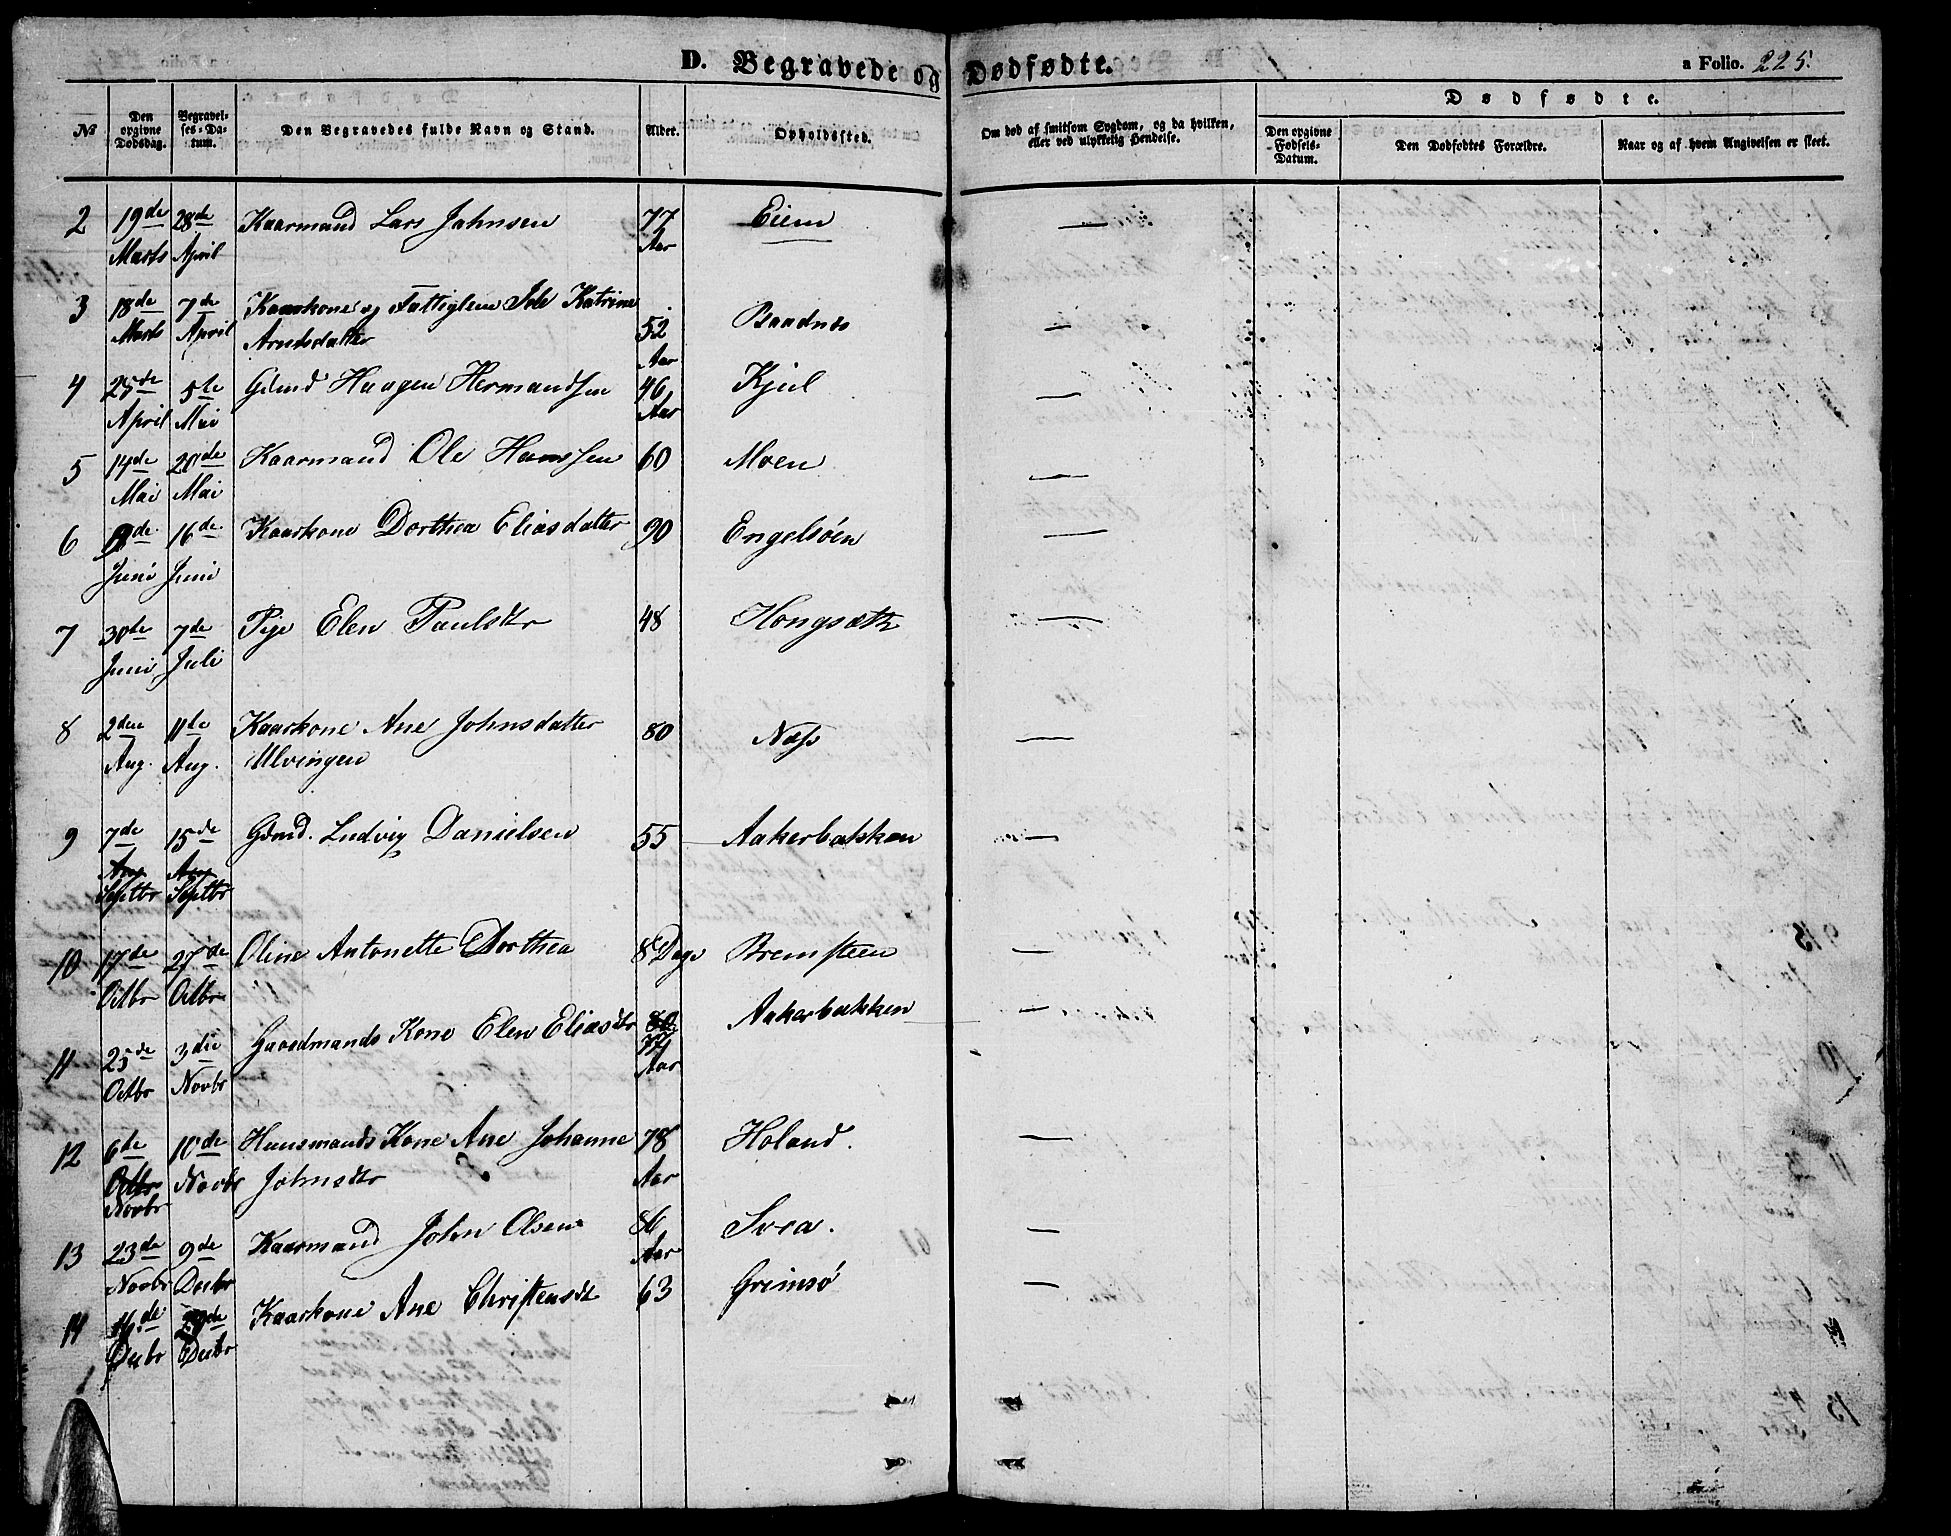 D. Begravede og Dødfødte.
a Folio. 225.
No Den opgivne Dødsdag. Begravelses-Datum. Den Begravedes fulde Navn og Stand. Alder. Opholdssted. Om død af smitsom Sygdom, og da hvilken, eller ved ulykkelig Hendelse. Dødfødte.
Den opgivne Fødsels-Datum. Den Dødfødtes Forældre. Naar og af hvem Angivelsen er skeet.
2 19de 28de Kaarmand Lars Johnsen 77 Eiem —
Marts April Aar
3 18de 7de Kaarkone og Fattiglem Katrine 52 Baadnes —
Marts April Arntsdatter Aar
4 25de 5te Gdmd Haagen Hermandsen 46 Kjul —
April Mai Aar
5 14de 20de Kaarmand Ole Hanssen 60 Moen —
Mai Mai
6 de 16de Kaarkone Dorthea Eliasdatter 90 Engelsöen —
Juni Juni
7 30te 7de Pige Elen Paulsdtr 48 Hongsæth —
Juni Juli
8 2den 11te Kaarkone Ane Johnsdatter 80 Næss —
Aug. Aug. Ulvingen
9 7de 15de Gdmd. Ludvig Danielsen 55 Aakerbakken —
Aug Aug
Septbr Septbr
10 17de 27de Oline Antonette Dorthea 8 Dage Bremsteen —
Octbr Octbr
11 25de 3die Gaardmands Kone Elen Eliasdtr 80 Aakerbakken —
Octbr Novbr 77 Aar
12 6te 10de Huusmands Kone Ane Johanne 78 Holand. —
Octbr Novbr Johnsdtr Aar
Novbr
13 23de 9de Kaarmand John Olsen 86 Svea. —
Novbr Decbr Aar
14 16de de Kaarkone Ane Christensdt 63 Grimsö —
Decbr Decbr